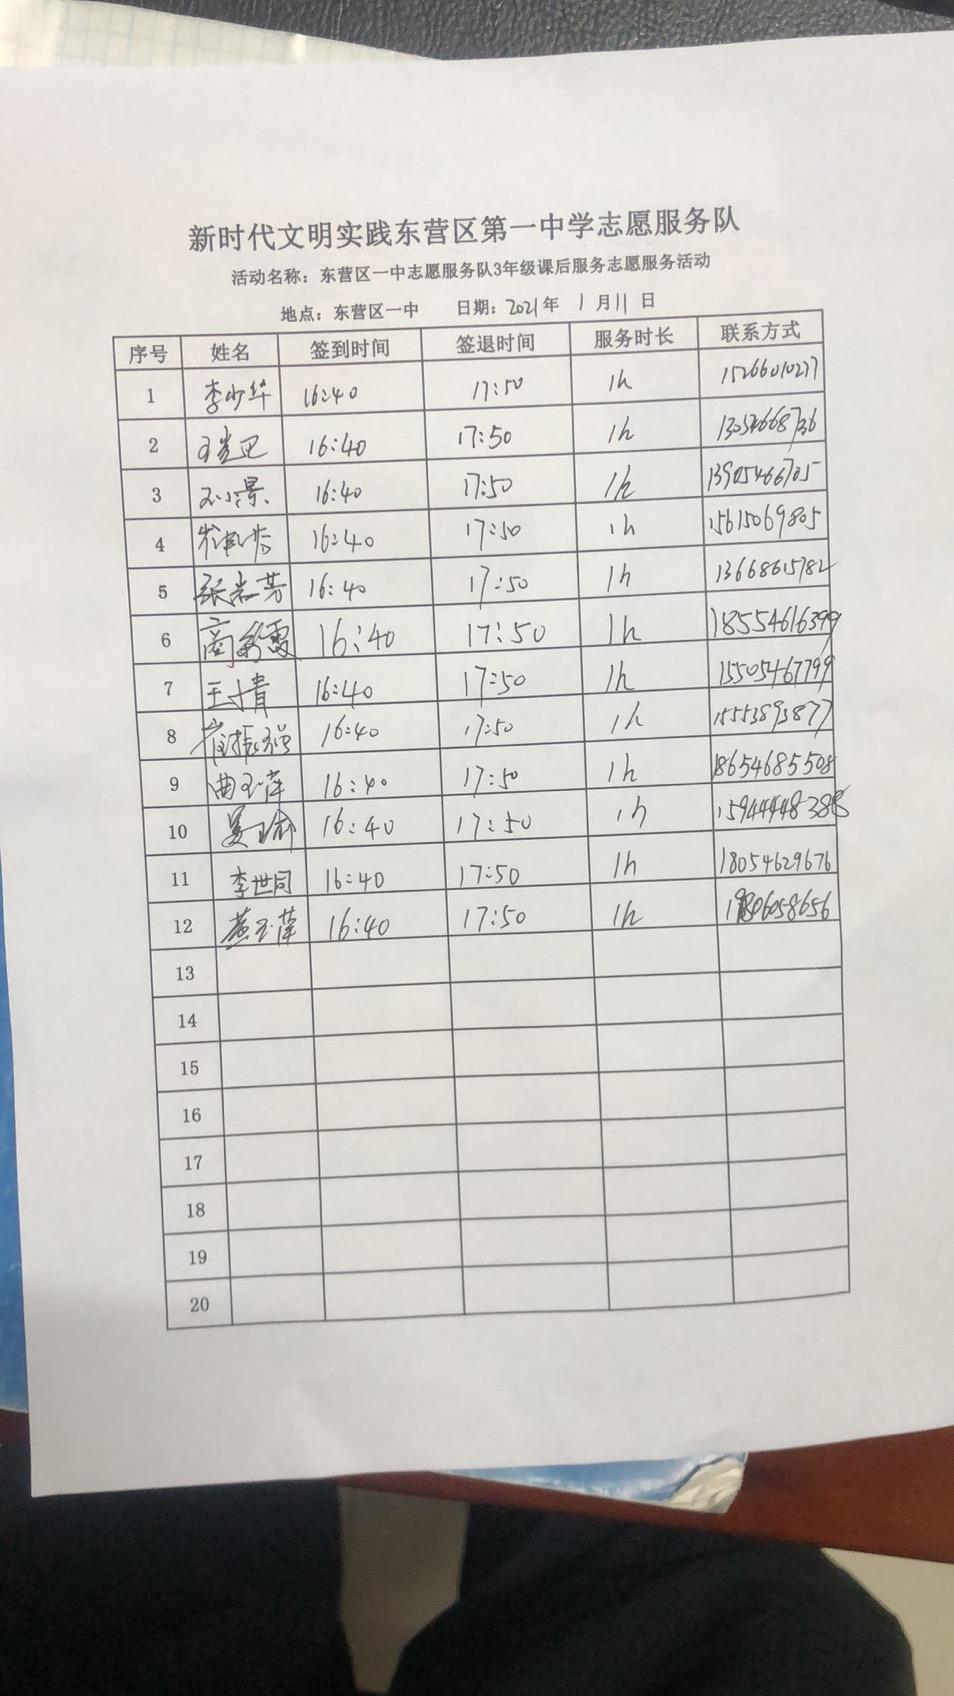 新时代文明实践东营区第一中学志愿服务队
活动名称：东营区一中志愿服务队3年级课后服务志愿服务活动
地点：东营区一中 日期：2021年 1月11日
序号 姓名 签到时间 签退时间 服务时长 联系方式
1 李少华 16:40 17:50 1h 15266010277
2 16:40 17:50 1h
3 16:40 17:50 1h 13905466705
4 16:40 17:50 1h 15615069805
5 张岩芳 16:40 17:50 1h 13668615782
6 商彩霞 16:40 17:50 1h 18554616399
7 王倩 16:40 17:50 1h 15505467799
8 崔振强 16:40 17:50 1h 15553893877
9 曲玉萍 16:40 17:50 1h 18654685508
10 16:40 17:50 1h 15944448388
11 李世同 16:40 17:50 1h 18054629676
12 燕玉萍 16:40 17:50 1h
13
14
15
16
17
18
19
20